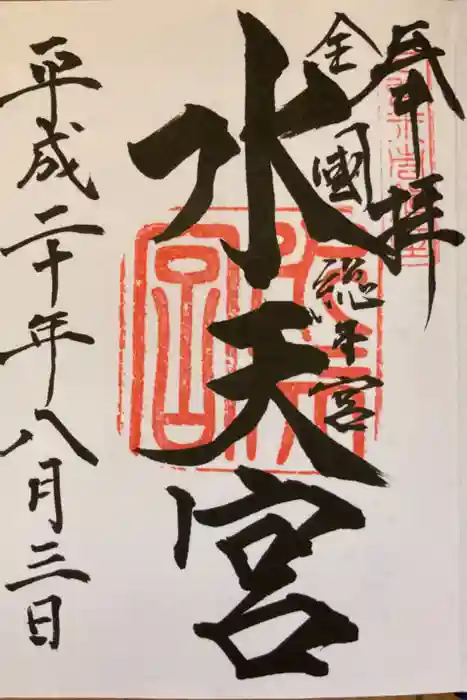 奉拝
全國総本宮
水天宮
平成二十年八月三日